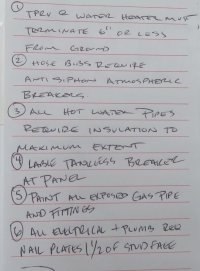 ① TPRV @ WATER HEATER MUST
TERMINATE 6" OR LESS
FROM GROUND
② HOSE BIBS REQUIRE
ANTI SIPHON ATMOSPHERIC
BREAKERS
③ ALL HOT WATER PIPES
REQUIRE INSULATION TO
MAXIMUM EXTENT
④ LABLE TANKLESS BREAKER
AT PANEL
⑤ PAINT ALL EXPOSED GAS PIPE
AND FITTINGS
⑥ ALL ELECTRICAL + PLUMB REQ
NAIL PLATES 1 1/2 OF STUD FACE